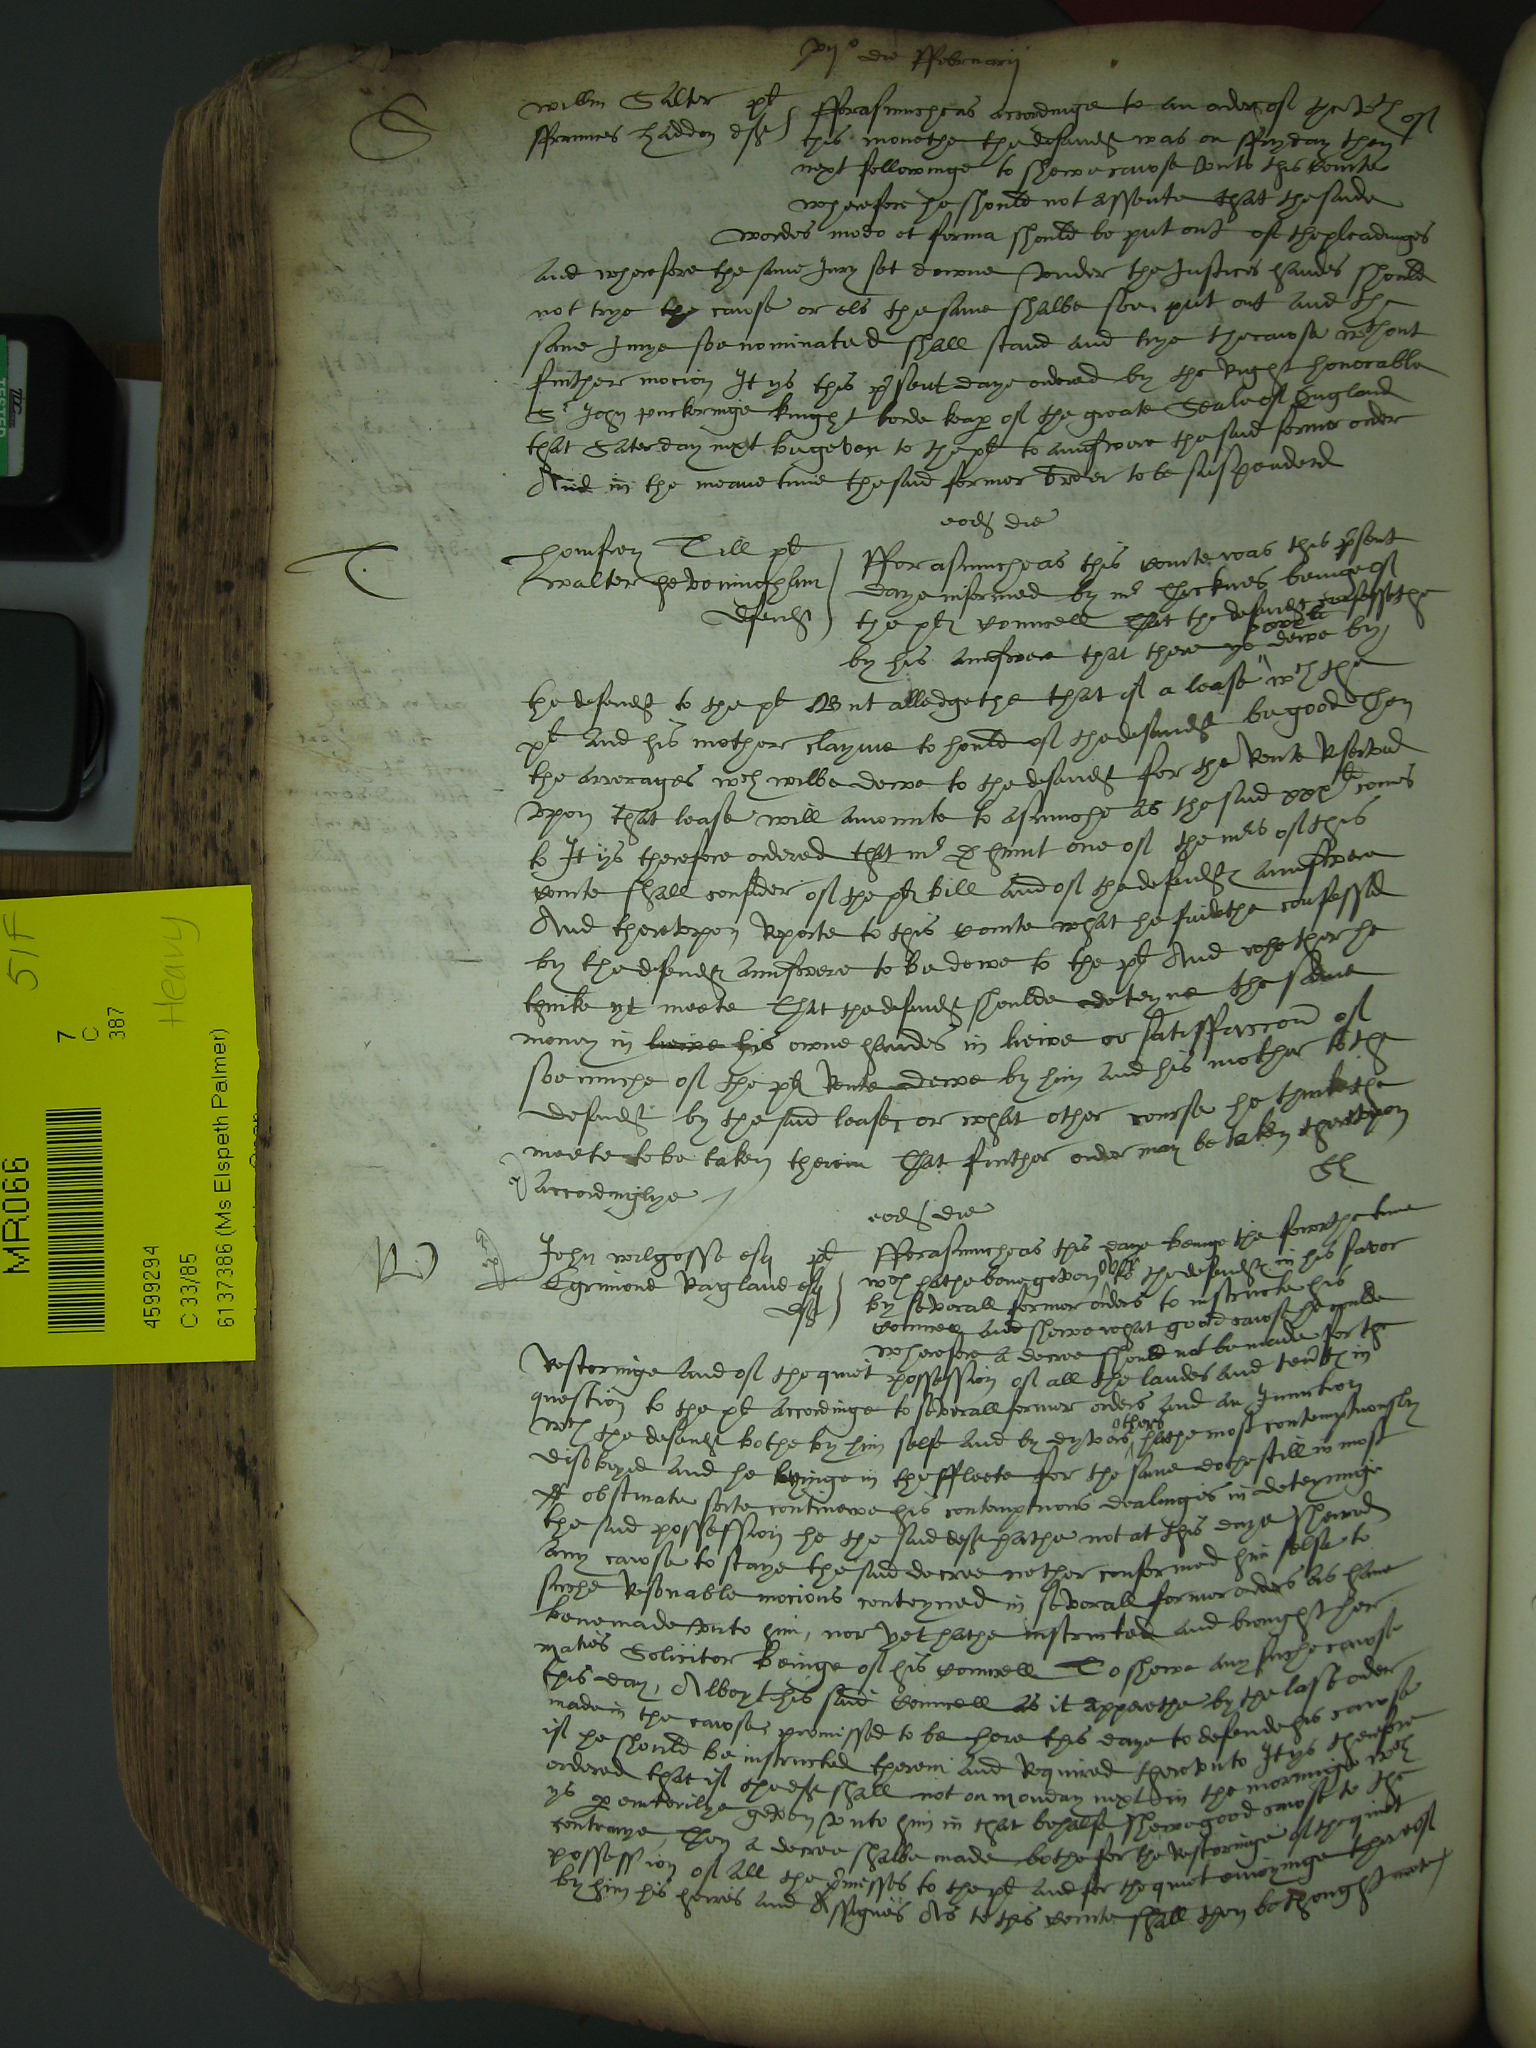 xij° die Februarij
S
Willm Salter pl
Fraunces Haddon def
Fforasmucheas accordinge to an order of the vth of
this monethe the defendt was on Fryday then
next followinge to shewe cawse vnto this Courte
wherefore he should not assente that the saide
wordes modo et forma should be put out of the pleadinges
and wherefore the same Jury set downe vnder the Justices handes should
not trye the cawse or els the same shalbe soe put out and the
same Jurye soe nominated shall stand and trye the cawse wthout
further mocion It ys this pr̃sent daye ordered by the Right honorable
Sr John Puckeringe knight Lorde keaper of the greate Seale of England
that Saterday next be geven to the pl to aunswere the said former order
And in the meane time the said former order to be suspended
eod die
T.
Homfrey Till pl
Walter heveningham
defendt
Fforasmucheas this Courte was this pr̃sent
daye informed by mr Thicknes beinge of
the plt Councell That the defendt confessethe
by his aunswere that there ys xxxli dewe by
the defendt to the pl But alledgethe that if a lease wch the
pl and his mother clayme to hould of the defendt be good Then
the arrerages wch wilbe dewe to the defendt for the Rente Reserved
vpon that lease will amounte to asmuche as the said xxxli comes
to It ys therefore ordered that mr D Hunt one of the mrs of this
Courte shall consider of the pls bill and of the defendts aunswere
And therevpon Reporte to this Courte what he findethe confessed
by the defendts aunswere to be dewe to the pl And whether he
thinke yt meete That the defendt shoulde deteyne the same
money in lieive his owne handes in lieive or satisfaccon of
soe muche of the pls Rente dewe by him and his mother to the
defendt by the said lease, or what other course he thinkethe
meete to be taken therein That further order may be taken therevpon
accordinglye
eod die
R.
John Wilgosse esq pl
Egrimond Ragland esq
def
Fforasmucheas this daye beinge the fowrthe time
wch hathe bene geven to the defendt in his favor
by severall former orders to instructe his
Councell and shewe what good cawse he coulde
wherefore a decree should not be made for the
Restoringe and of the quiet possession of all the landes and tents in
question to the pl accordinge to severall former orders and an Iniunction
wch the defendt bothe by him selfe and by dyvers others hathe most contemptuously
disobeyed and he lyinge in the Ffleete for the same dothe still in most
obstinate sorte continewe his contemptuous dealinges in deteyninge
the said possession he the said deft hathe not at this daye shewed
any cawse to staye the said decree nether conformed him selfe to
suche Resonable mocions conteyned in severall former orders as have
bene made vnto him, nor yet hathe instructed and brought her
maties Solicitor beinge of his Councell To shewe any suche cawse
this day, Albeyt his said Councell as it apperethe by the last order
made in the cawse, promissed to be here this daye to defende his cawse
if he should be instructed therein and Required therevnto It ys therefore
ordered that if the deft shall not on Monday next in the morninge wch
ys peremtorilye geven vnto him in that behalfe shewe good cawse to the
contrarye, Then a decree shalbe made bothe for the Restoringe of the quiet
possession of all the pr̃misses to the pl and for the quiet enioyinge thereof
by him his heires and Assignes As to this Courte shall then be thought mete
51F
Heavy
7
C
387
MR066
4599294
C 33/85
6137386 (Ms Elspeth Palmer)
TESTED